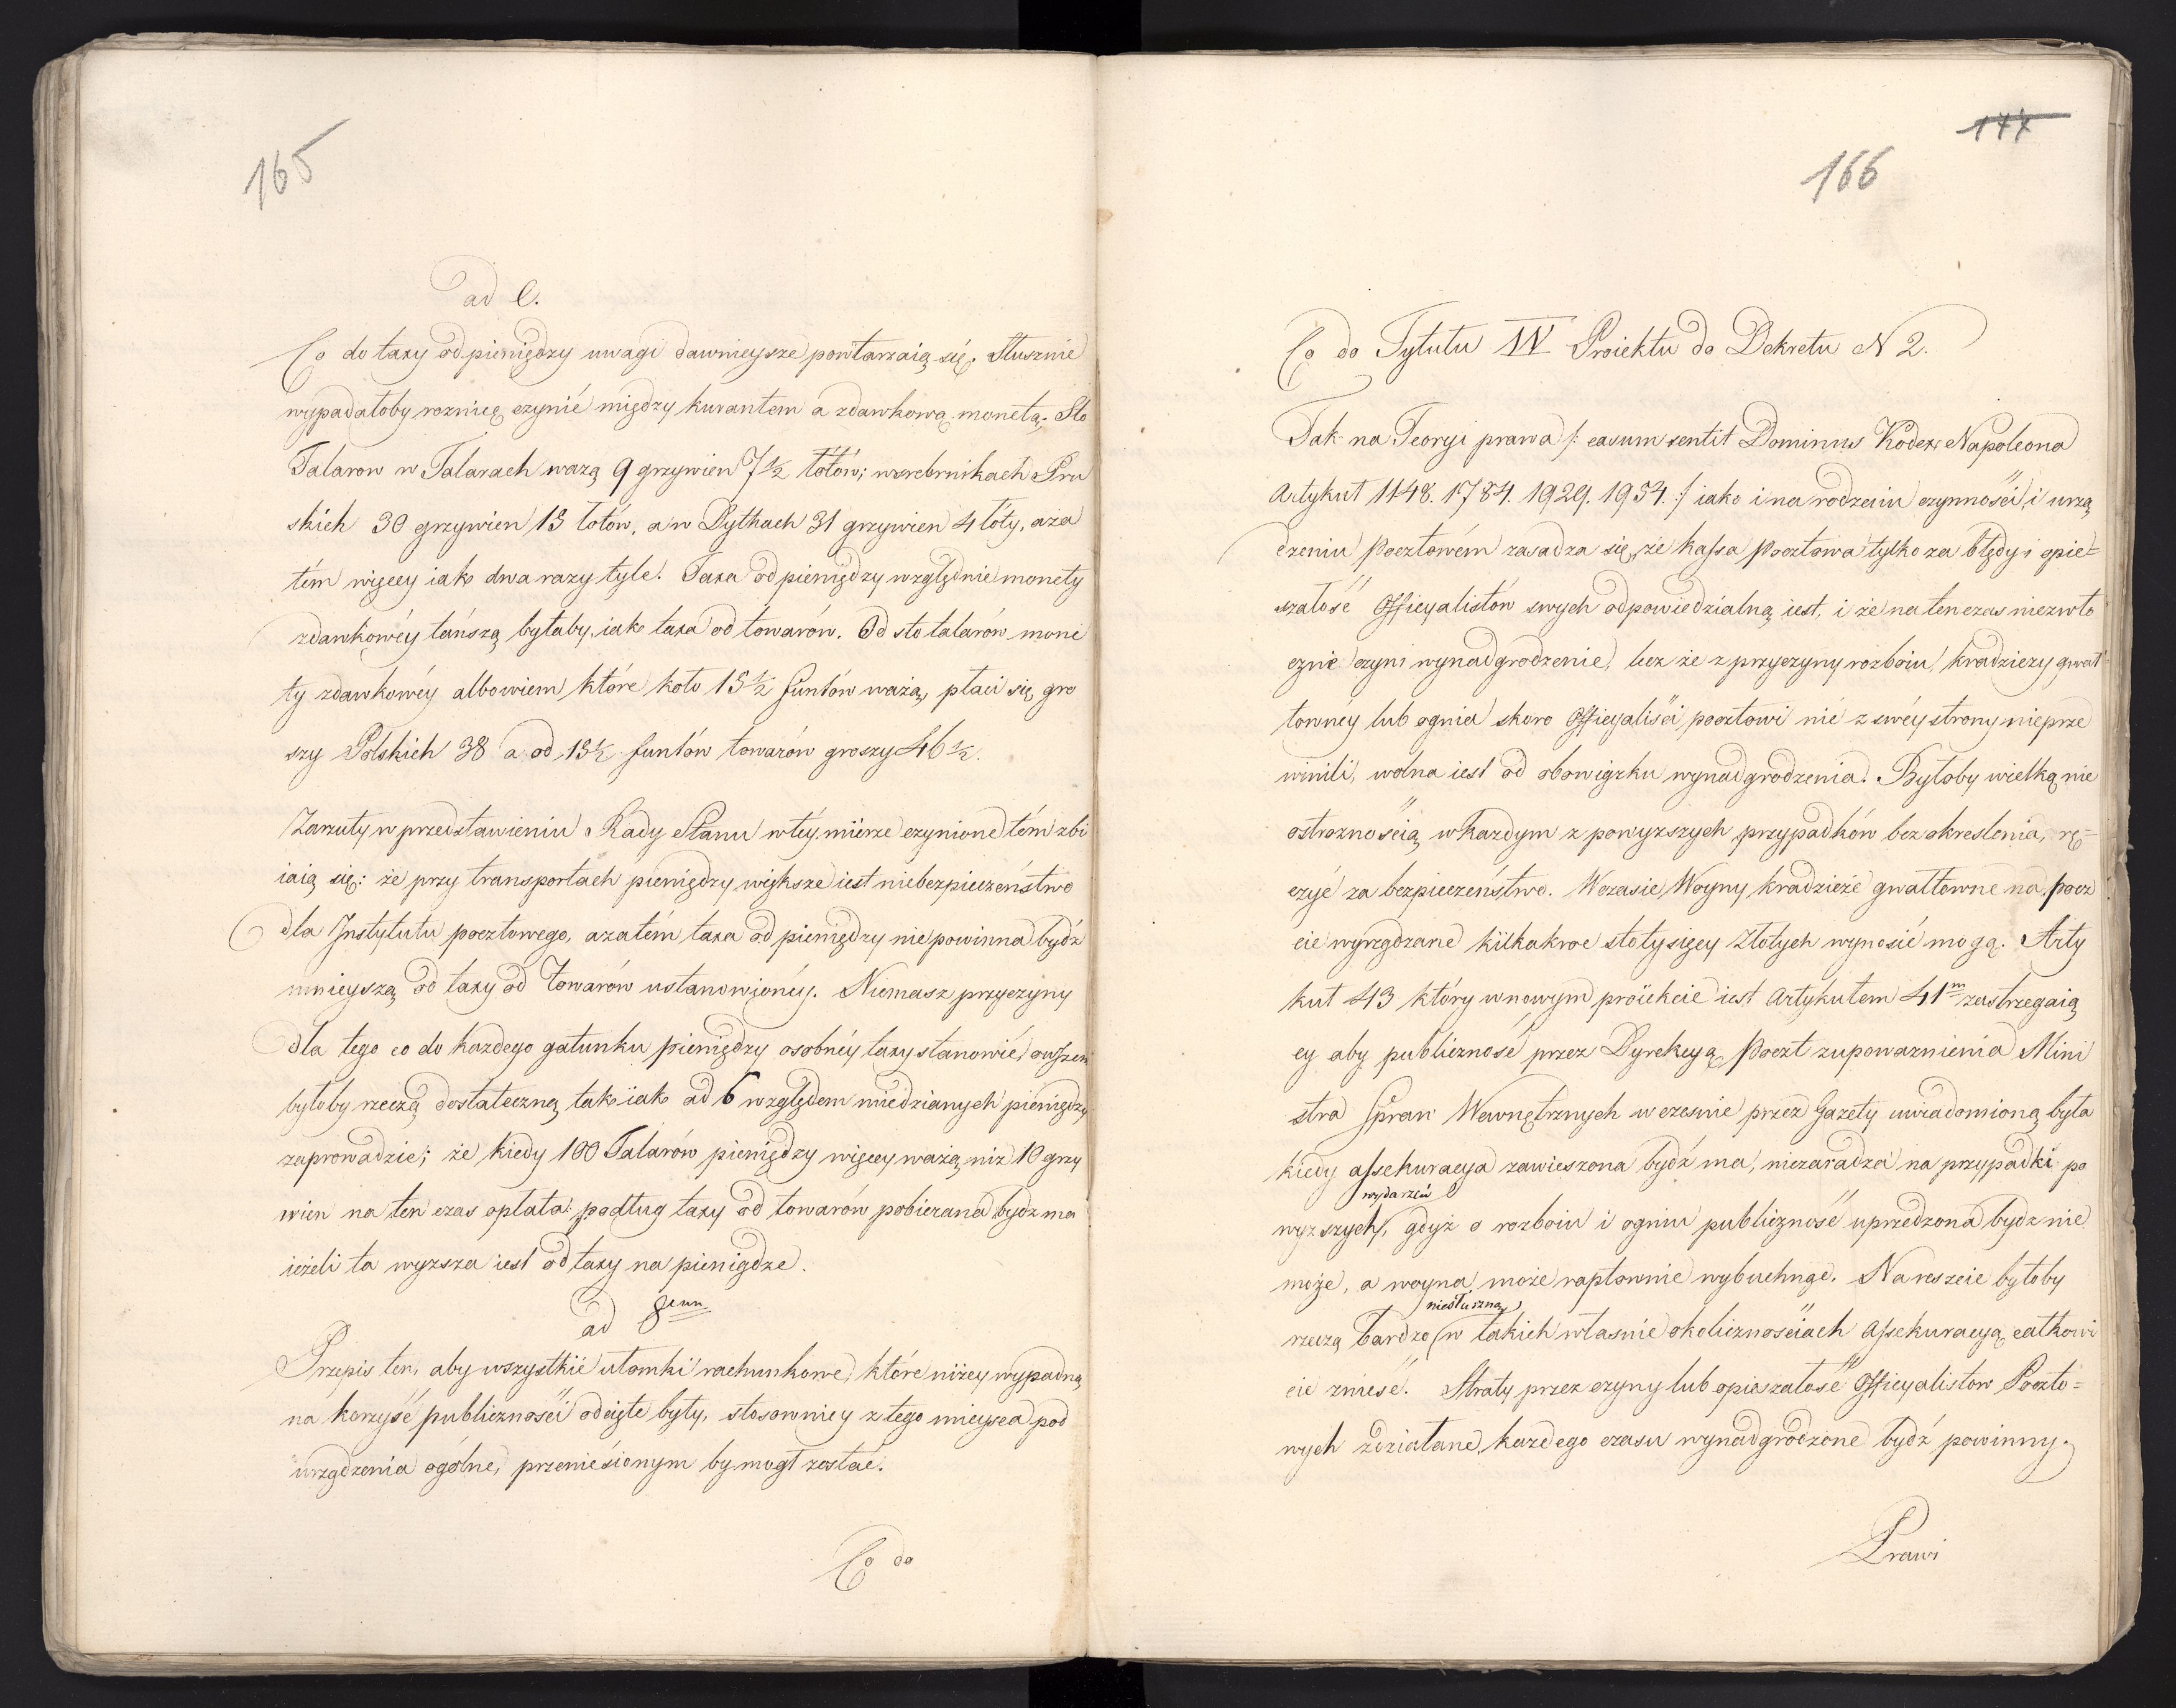 165
ad C.
Co do taxy od pieniędzy uwagi dawnieysze powtarzaią się. Słusznie
wypadałoby roznicę czynić między kurantem a zdawkową monetą. Sto
Talarow w Talarach wazą 9 grzywien 7½ łótów; w srebrnikach Pru
skich 30 grzywien 13 łotów, a w Dytkach 31 grzywien 4 łóty, a za
tém więcey iak dwa razy tyle. Taxa od pieniędzy względnie monety
zdawkowéy tańszą byłaby, iak taxa od towarów. Od sto talarów mone
ty zdawkowéy albowiem które koło 15½ funtów ważą, płaci się gro
szy Polskich 38 a od 15½ funtów towarów groszy 46½.
Zarzuty w przedstawieniu Rady Stanu w téy mierze czynione tém zbi
iaią się: że przy transportach pieniędzy większe iest niebezpieczeństwo
dla Instytutu pocztowego, a zatém taxa od pieniędzy nie powinna bydź
mnieyszą od taxy od Towarów ustanowionéy. Niemasz przyczyny
dla tego co do każdego gatunku pieniędzy osobnéy taxy stanowić, owszem
byłoby rzeczą dostateczną, tak iak ad 6 względem miedzianych pieniędzy
zaprowadzić; że kiedy 100 Talarów pieniędzy więcey ważą niz 10 grzy
wien na ten czas opłata podług taxy od towarów pobierana bydz ma
ieżeli ta wyzsza iest od taxy na pieniądze.
ad 8um
Przepis ten, aby wszystkie ułomki rachunkowe, które niżey wypadną
na korzyść publiczności odcięte były, stosowniey z tego mieysca pod
urządzenia ogólne, przeniesionym by mogł zostać.
Co do
177
166
Co do Tytułu IV Proiektu do Dekretu N 2.
Tak na Teoryi prawa /: casum sentit Dominus Kodex Napoleona
Artykuł 1148. 1784. 1929. 1954. :/ iako i na rodzaiu czynności i urzą
dzeniu pocztowém zasadza się, że kassa pocztowa tylko za błędy i opie=
szałość Officyalistów swych odpowiedzialną iest, i że na tenczas niezwło
cznie czyni wynadgrodzenie, lecz że z przyczyny rozboiu, kradzieży gwał
townéy lub ognia skoro Officyaliści pocztowi nic z swéy strony nie prze
winili, wolna iest od obowiązku wynadgrodzenia. Byłoby wielką nie
ostrożnością w każdym z powyzszych przypadków bez określenia, rę=
czyć za bezpieczeństwo. W czasie Woyny kradzieże gwałtowne na pocz
cie wyrządzane kilkakroc stotysięcy Złotych wynosić mogą. Arty
kuł 43 który w nowym proiekcie iest Artykułem 41m zastrzegaią
cy aby publiczność przez Dyrekcyą Poczt z upoważnienia Mini
stra Spraw Wewnętrznych w czesnie przez Gazety uwiadomioną była
kiedy assekuracya zawieszona bydź ma, niezaradza na przypadki po
wydarzeń
wyzszych, gdyż o rozboiu i ogniu publiczność uprzedzona bydz nie
może, a woyna może raptownie wybuchnąć. Nareszcie byłoby
niesłuszną
rzeczą bardzo w takich własnie okolicznościach Assekuracyą całkowi
cie znieść. Straty przez czyny lub opieszałość Officyalistow Poczto=
wych zdziałane, każdego czasu wynadgrodzone bydź powinny.
Prawi